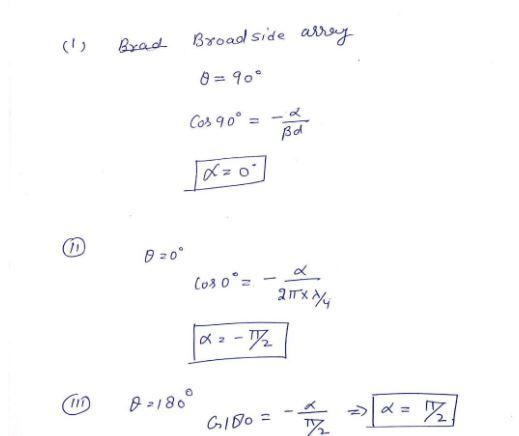 (1) Brad Broadside array
θ = 90°
Cos 90° = -α/βd
α = 0°
(ii) θ = 0°
Cos 0° = -α/2π×λ/4
α = -π/2
(iii) θ = 180°
Cos 180 = -α/π/2 => α = π/2